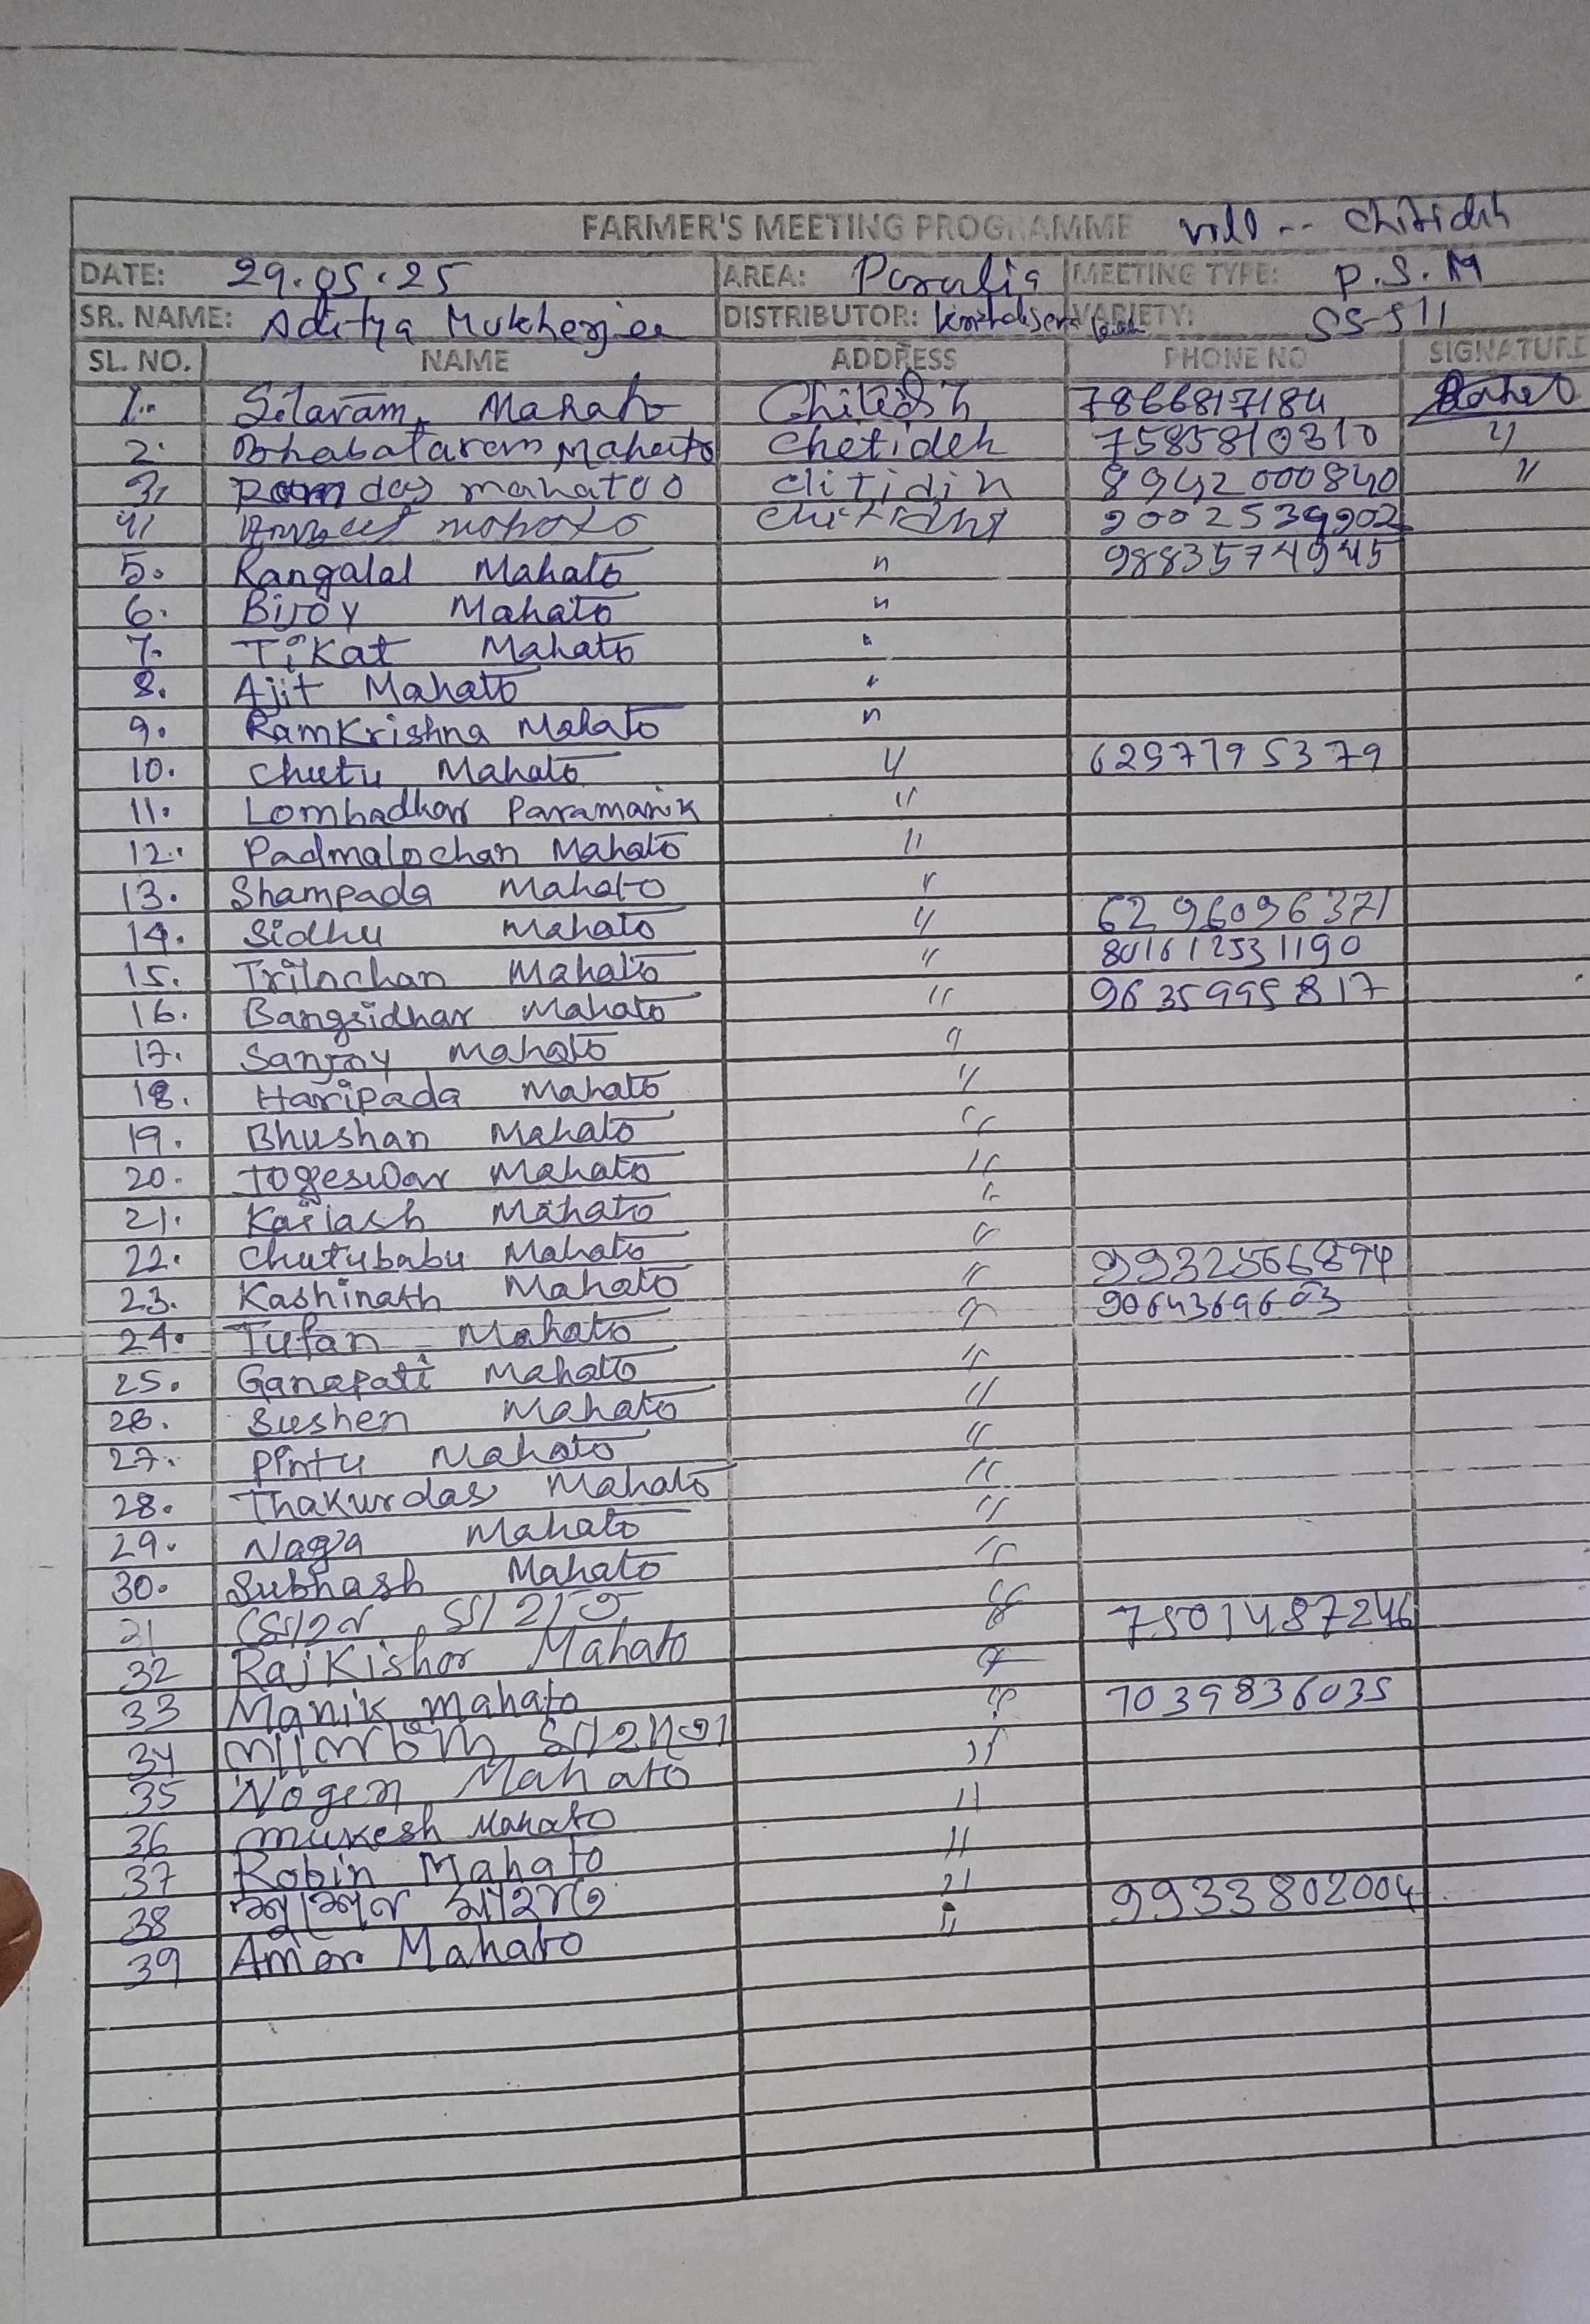 FARMER'S MEETING PROGRAMME vill -- Chitidih
DATE: 29.05.25 AREA: Purulia MEETING TYPE: P.S.M
SR. NAME: Aditya Mukherjee DISTRIBUTOR: VARIETY: SS-511
SL. NO. NAME ADDRESS PHONE NO SIGNATURE
1. Sitaram Mahato Chitidih 7866817184
2. Bhabataran Mahato Chetideh 7585810310 "
3. Ramdas mahatoo clitidih 8942000840 "
4. mohoto chitidhi 9002539902
5. Rangalal Mahato " 9883574945
6. Bijoy Mahato "
7. Tikat Mahato "
8. Ajit Mahato "
9. RamKrishna Mahato "
10. Chutu Mahato " 6297795379
11. Lombadhar Paramanik "
12. Padmalochan Mahato "
13. Shampada Mahato "
14. Sidhu Mahato " 6296096371
15. Trilochan Mahato " 801612531190
16. Bangsidhar Mahato " 9635995817
17. Sanjoy Mahato "
18. Haripada Mahato "
19. Bhushan Mahato "
20. Jogeswar Mahato "
21. Kailash Mahato "
22. Chutubabu Mahato "
23. Kashinath Mahato " 9932566894
24. Tufan Mahato " 9064369603
25. Ganapati Mahato "
26. Sushen Mahato "
27. Pintu Mahato "
28. Thakurdas Mahato "
29. Naga Mahato "
30. Subhash Mahato "
31 মোহন মাহাত " 7501487246
32 RajKishor Mahato "
33 Manik mahato " 7039836035
34 মাহাতো "
35 Nogen Mahato "
36 mukesh Mahato "
37 Robin Mahato "
38 মাহাত " 9933802004
39 Amor Mahato